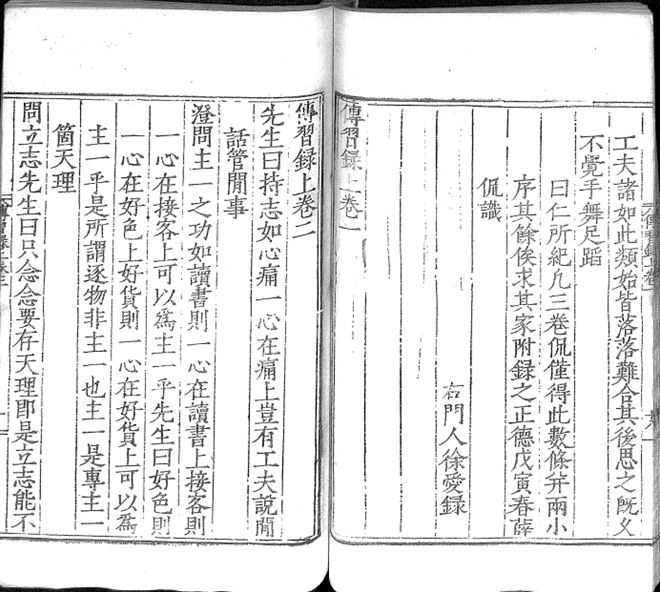 工夫諸如此類始皆落落難合其後思之既久
不覺手舞足蹈
曰仁所紀凡三卷侃僅得此數條并兩小
序其餘俟求其家附錄之正德戊寅春薛
侃識
右門人徐愛錄
傳習錄上卷一
傳習錄上卷二
先生曰持志如心痛一心在痛上豈有工夫說閒
話管閒事
澄問主一之功如讀書則一心在讀書上接客則
一心在接客上可以爲主一乎先生曰好色則
一心在好色上好貨則一心在好貨上可以爲
主一乎是所謂逐物非主一也主一是專主一
箇天理
問立志先生曰只念念要存天理即是立志能不